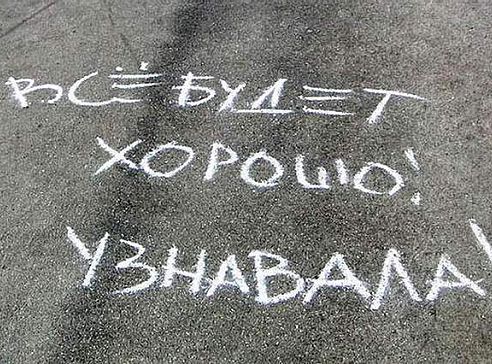 ВСЁ БУДЕТ
ХОРОШО!
УЗНАВАЛА!